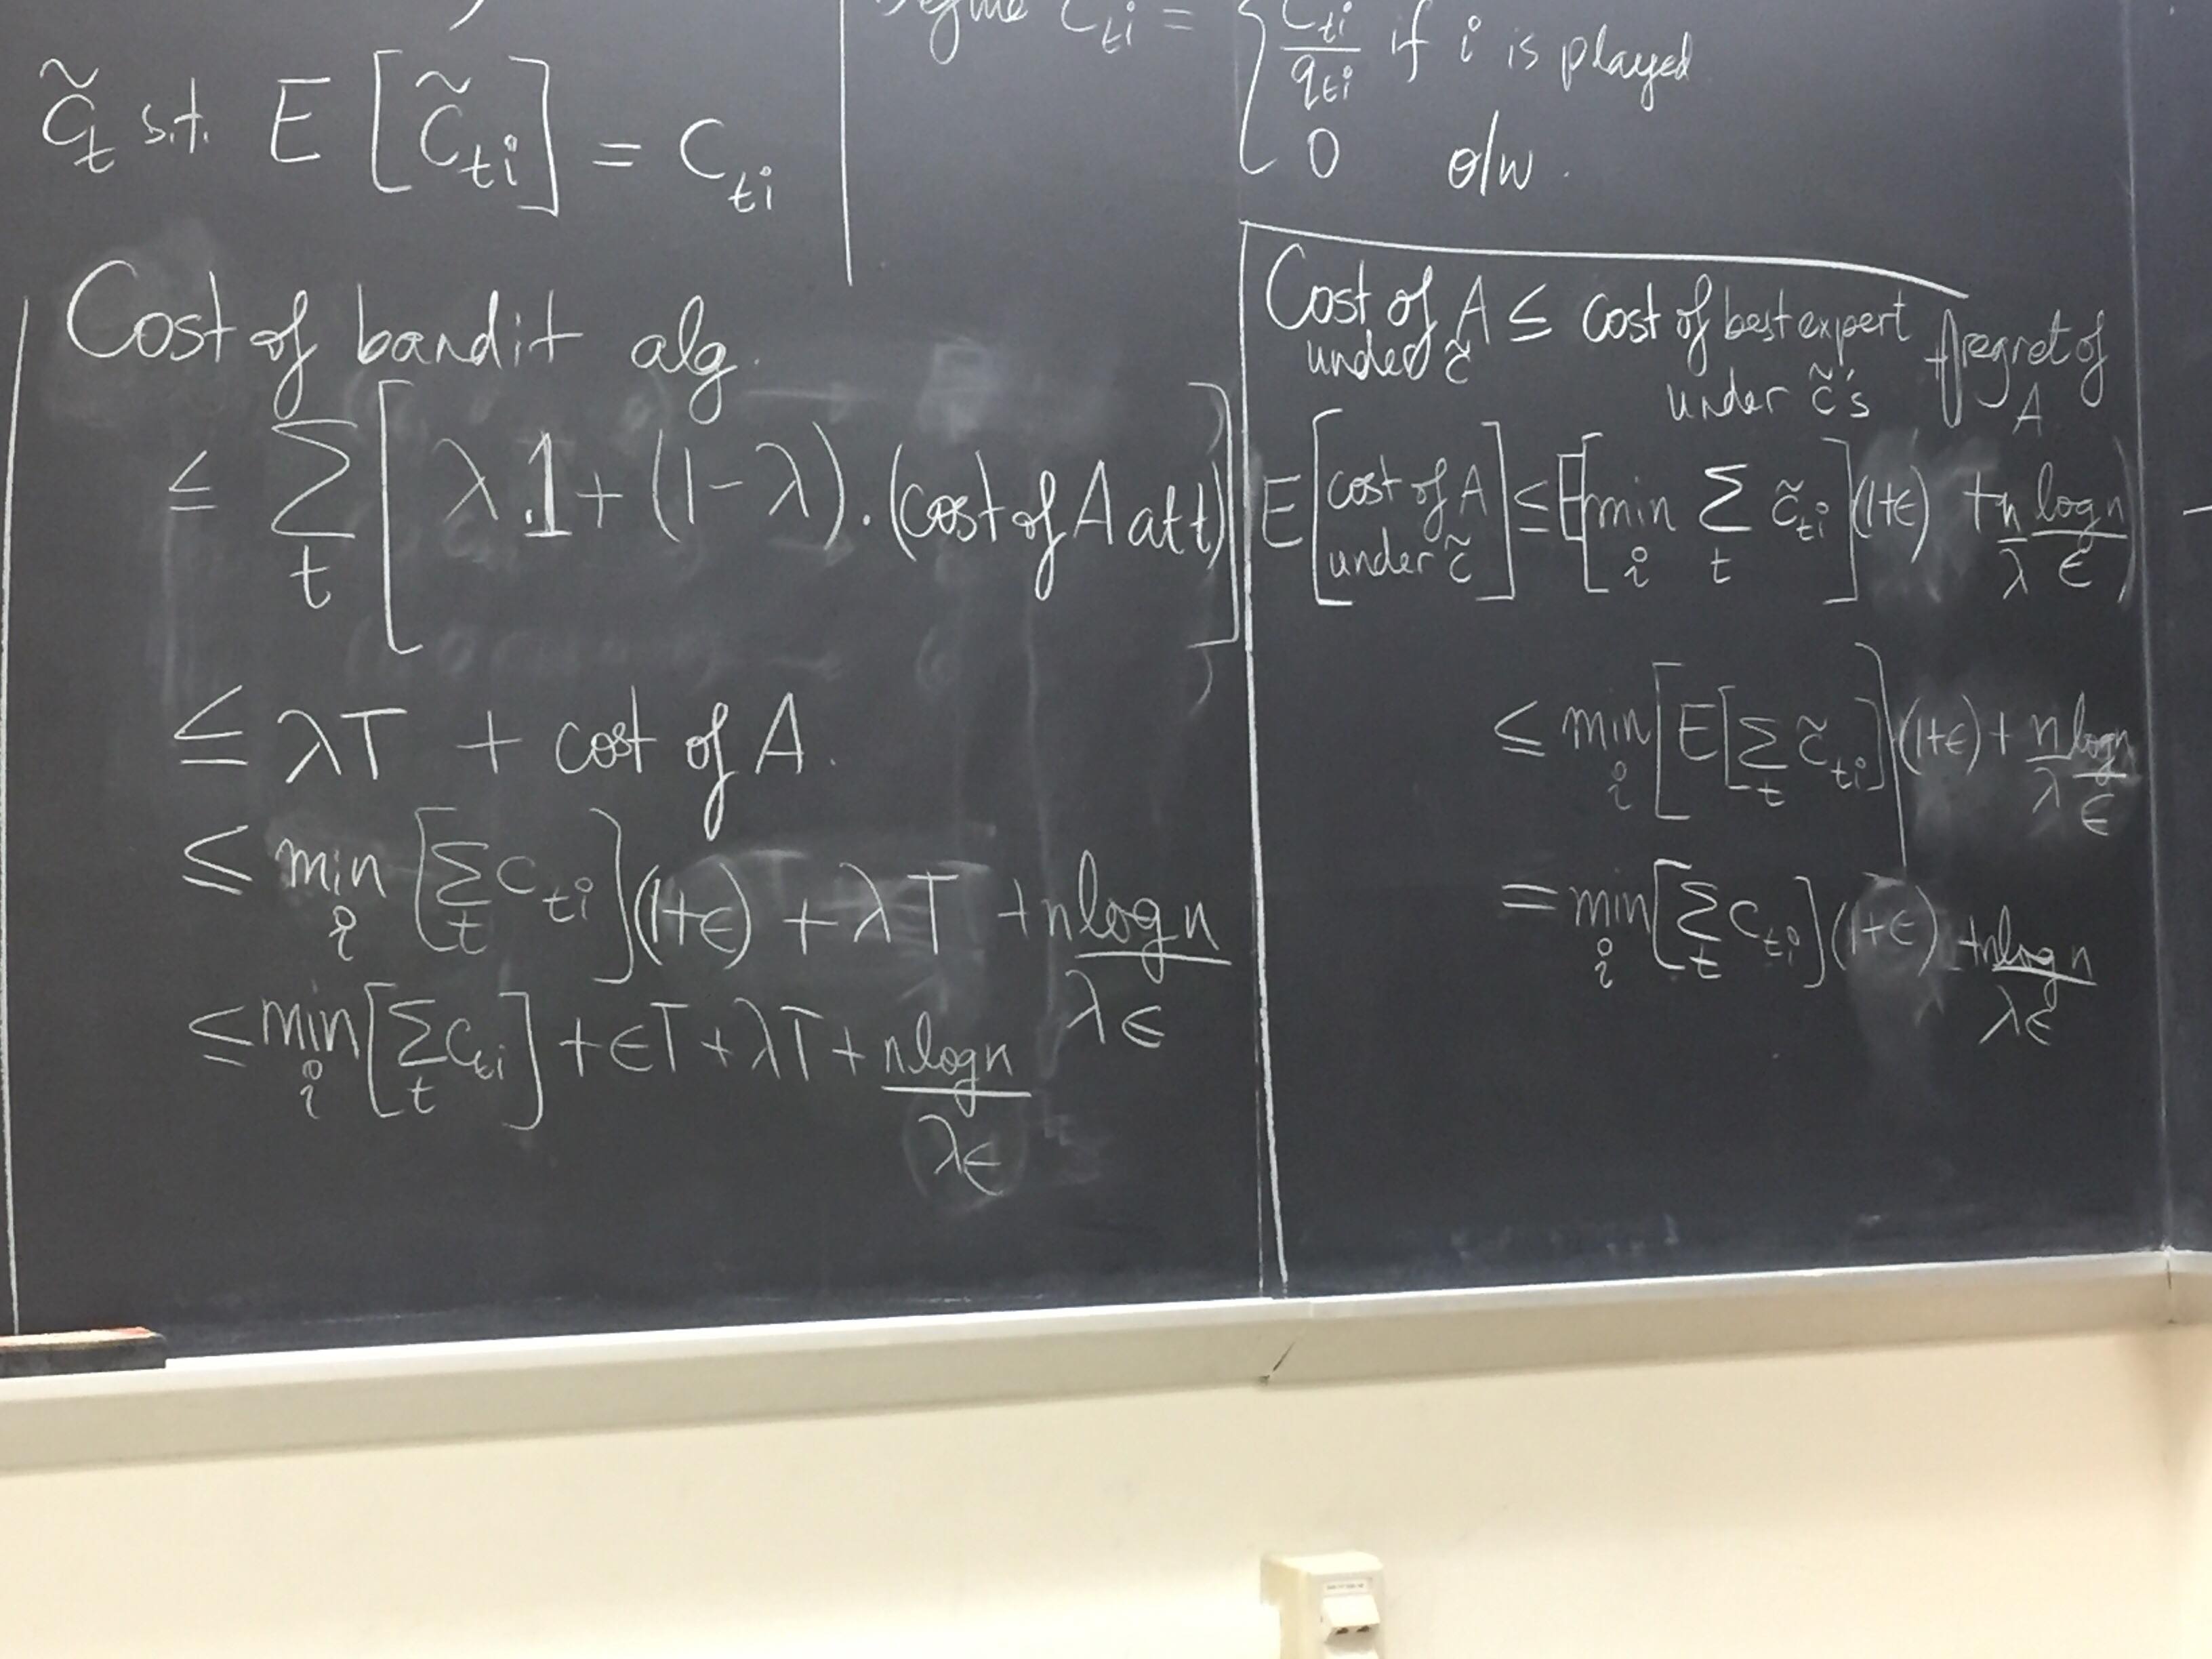 c̃_t s.t. E[c̃_ti] = c_ti
Define c̃_ti = { c_ti/q_ti if i is played
0 o/w.
Cost of bandit alg.
≤ ∑_t [λ.1 + (1-λ).(cost of A at t)]
≤ λT + cost of A.
≤ min_i [∑_t c_ti](1+ϵ) + λT + n log n/λϵ
≤ min_i [∑_t c_ti] + ϵT + λT + n log n/λϵ
Cost of A under c̃ ≤ cost of best expert under c̃'s + regret of A
E[cost of A under c̃] ≤ E[min_i ∑_t c̃_ti](1+ϵ) + n/λ log n/ϵ
≤ min_i [E[∑_t c̃_ti]](1+ϵ) + n/λ log n/ϵ
= min_i [∑_t c_ti](1+ϵ) + n log n/λϵ